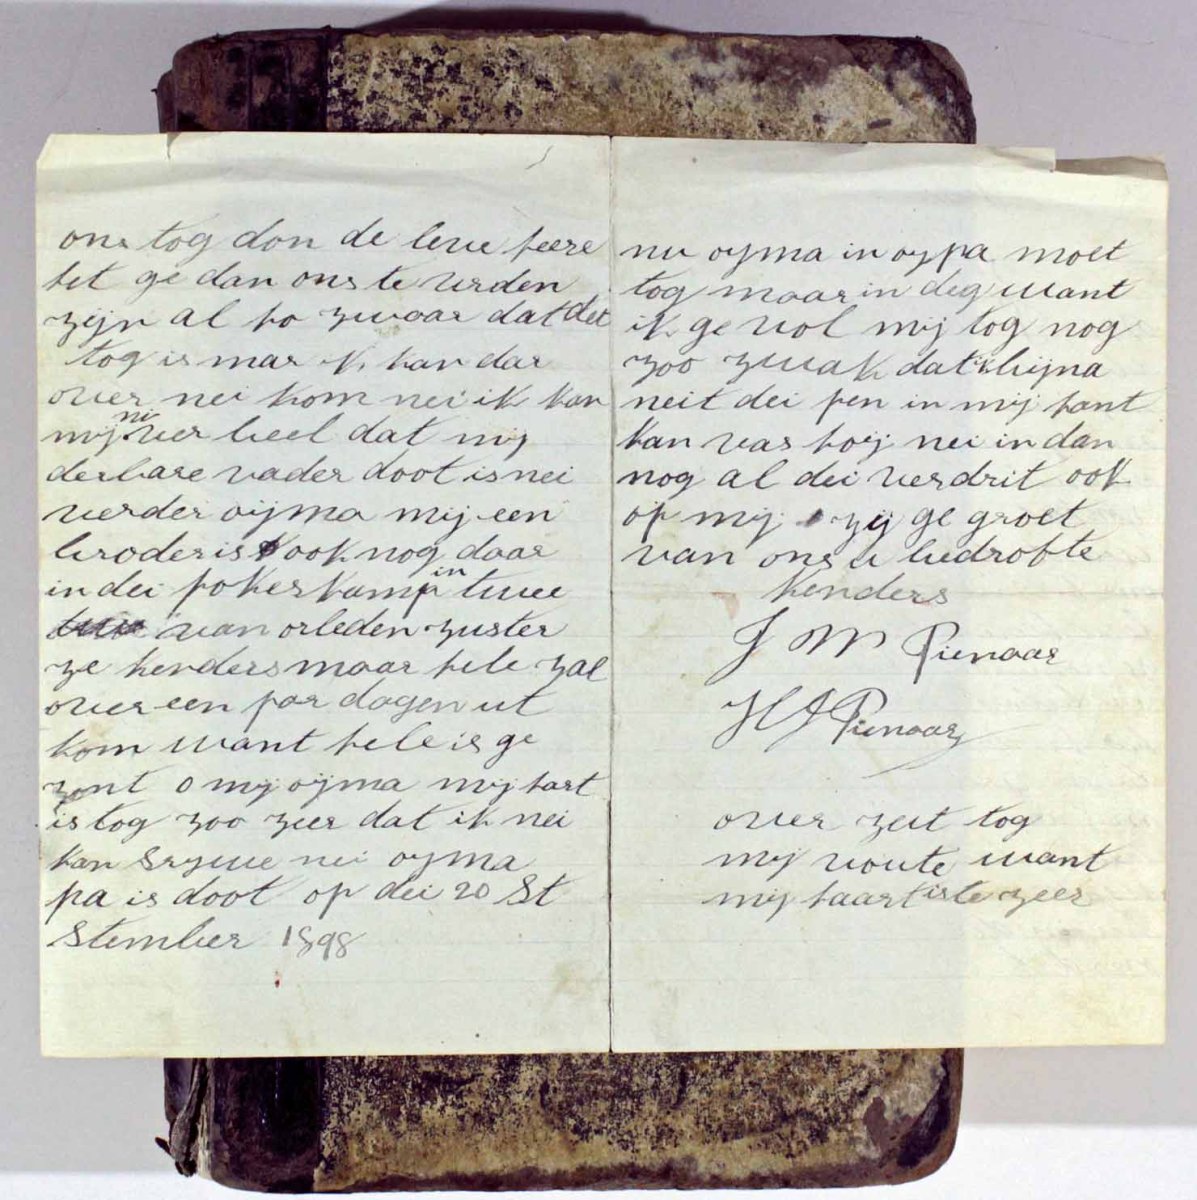 ons tog don de leve heere
het ge dan ons te verden
zijn al ho zwaar dat det
tog is mar ik kan dar
over nei kom nei ik kan
mij ni ver beel dat mij
derbare vader doot is nei
verder oijma mij een
broder is ook nog daar
in dei pokes kamp in twee
van orleden zuster
ze kenders maar hele zal
over een par dagen ut
kom want hele is ge
zont o mij oijma mij hart
is tog zoo zeer dat ik nei
kan Srywe nei oyma
pa is doot op dei 20 St
Stember 1898
nu oyma in oypa moet
tog maar in deg want
ik ge vol mij tog nog
zoo zwak dat ik bijna
neit dei pen in mij hant
kan vas hoij nei in dan
nog al dei verdrit ook
op mij zij ge groet
van ons u bedrofte
kenders
J M Pienaar
H J Pienaar
over zeit tog
mij voute want
mij haart is te zeer